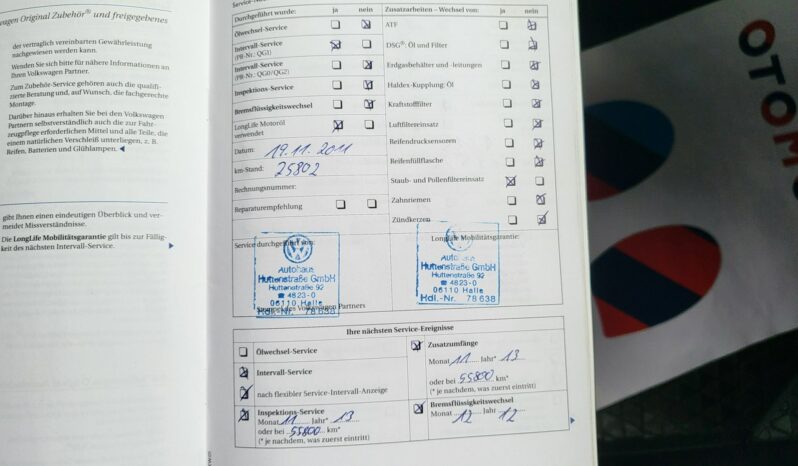 wagen Original Zubehör® und freigegebenes
der vertraglich vereinbarten Gewährleistung
nachgewiesen werden kann.
Wenden Sie sich bitte für nähere Informationen an
Ihren Volkswagen Partner.
Zum Zubehör-Service gehören auch die qualifi-
zierte Beratung und, auf Wunsch, die fachgerechte
Montage.
Darüber hinaus erhalten Sie bei den Volkswagen
Partnern selbstverständlich auch die zur Fahr-
zeugpflege erforderlichen Mittel und alle Teile, die
einem natürlichen Verschleiß unterliegen, z. B.
Reifen, Batterien und Glühlampen.
gibt Ihnen einen eindeutigen Überblick und ver-
meidet Missverständnisse.
Die LongLife Mobilitätsgarantie gilt bis zur Fällig-
keit des nächsten Intervall-Service.
Durchgeführt wurde: ja nein
Ölwechsel-Service
Intervall-Service
(PR-Nr.: QG1)
Intervall-Service
(PR-Nr.: QG0/QG2)
Inspektions-Service
Bremsflüssigkeitswechsel
LongLife Motoröl
verwendet
Datum: 19.11.2011
km-Stand: 25802
Rechnungsnummer:
Reparaturempfehlung
Zusatzarbeiten – Wechsel von: ja nein
ATF
DSG®: Öl und Filter
Erdgasbehälter und -leitungen
Haldex-Kupplung: Öl
Kraftstofffilter
Luftfiltereinsatz
Reifendrucksensoren
Reifenfüllflasche
Staub- und Pollenfiltereinsatz
Zahnriemen
Zündkerzen
Service durchgeführt von:
Autohaus
Huttenstraße GmbH
Huttenstraße 92
☎ 4823-0
06110 Halle
Hdl.-Nr. 78638
Volkswagen Partners
LongLife Mobilitätsgarantie:
Autohaus
Huttenstraße GmbH
Huttenstraße 92
☎ 4823-0
06110 Halle
Hdl.-Nr. 78638
Ihre nächsten Service-Ereignisse
Ölwechsel-Service
Intervall-Service
nach flexibler Service-Intervall-Anzeige
Inspektions-Service
Monat 11 Jahr* 13
oder bei 55800 km*
(* je nachdem, was zuerst eintritt)
Zusatzumfänge
Monat 11 Jahr* 13
oder bei 55800 km*
(* je nachdem, was zuerst eintritt)
Bremsflüssigkeitswechsel
Monat 12 Jahr 12
OTOM